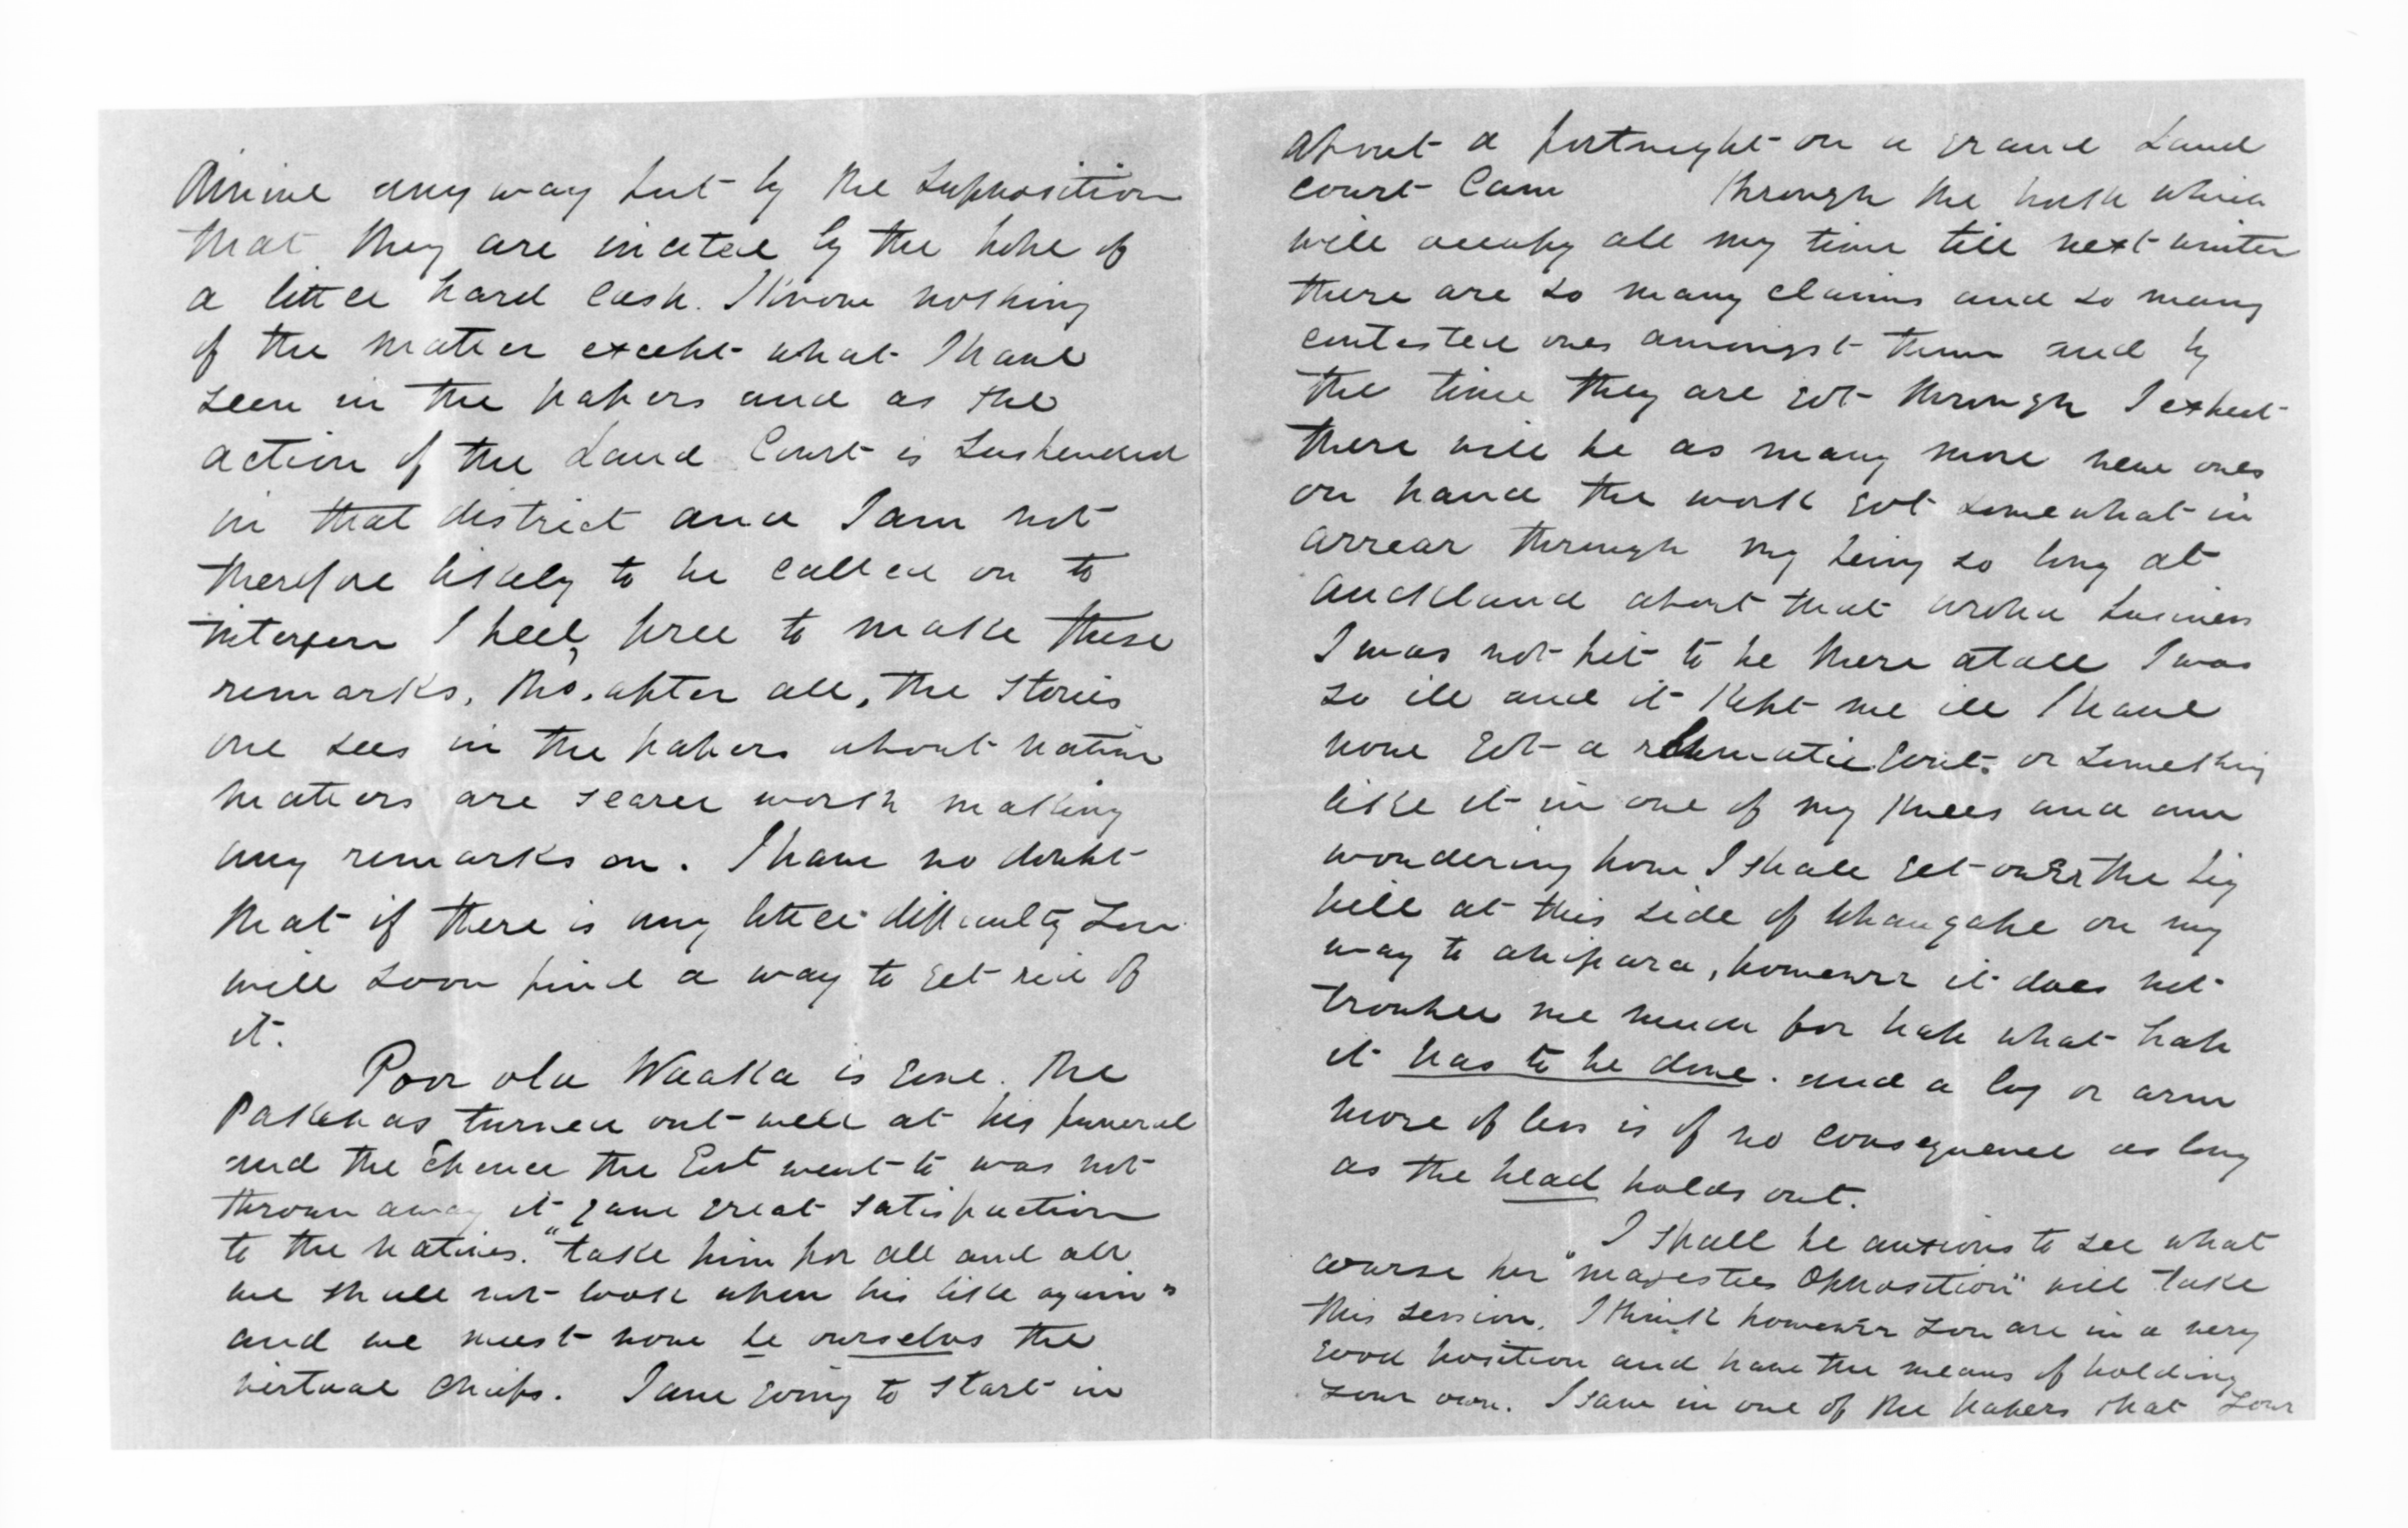 divine any way but by the supposition
that they are incited by the hope of
a little hard cash. I know nothing
of the matter except what I have
seen in the papers and as the
action of the Land Court is suspended
in that district and I am not
therefore likely to be called on to
interfere I feel, free to make these
remarks, tho, after all, the stories
one sees in the papers about native
matters are scarce worth making
any remarks on. I have no doubt
that if there is any little difficulty you
will soon find a way to get rid of
it.
Poor old Waaka is gone. The
Pakehas turned out well at his funeral
and the expence the Govt went to was not
thrown away it gave great satisfaction
to the natives. "take him for all and all
we shall not look upon his like again"
and we must now be ourselves the
virtual chiefs. I am going to start in
about a fortnight on a grand Land
court Cam through the bush which
will occupy all my time till next winter
there are so many claims and so many
contested ones amongst them and by
the time they are got through I expect
there will be as many more new ones
on hand the work got somewhat in
arrear through my being so long at
Auckland about that aroha business
I was not fit to be there at all I was
so ill and it kept me ill I have
now got a rhumatic gout. or something
like it in one of my knees and am
wondering how I shall get over the big
hill at this side of Whangape on my
way to ahipara, however it does not
trouble me much for hap what hap
it has to be done. and a leg or arm
more of less is of no consequence as long
as the head holds out.
I shall be anxious to see what
course her "majesties Opposition" will take
this session. I think however you are in a very
good position and have the means of holding
your own. I saw in one of the papers that your